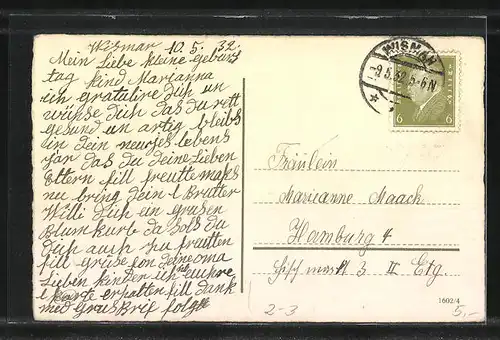 Wismar 10. 5. 32.
Mein Liebe kleine geburs
tag kind Marianna
ich gratulire dich un
dich das du
gesund un artig bleibs
in dein lebens
jar das du deine Lieben
Eltern fill freutte
nu bring dein l Brutter
Willi dich ein grosen
Blumkurb da sols du
dich auch zu fruiten
fill grüse von deine oma
Lieben kinder
l karte erhalten fill dank
med Grus Brif folgt
WISMAR
-9.5.32. 5-6N
6 6
Fräulein
Marieanne Maach
Hamburg 4
3 II Etg
2-3
1602/4
5,-